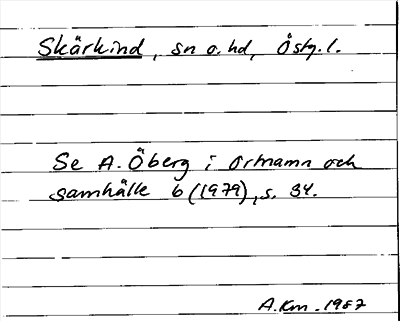 Skärkind, sn o. hd, Östg. l.
Se A. Öberg i Ortnamn och
samhälle 6 (1979), s. 34.
A.Km. 1987